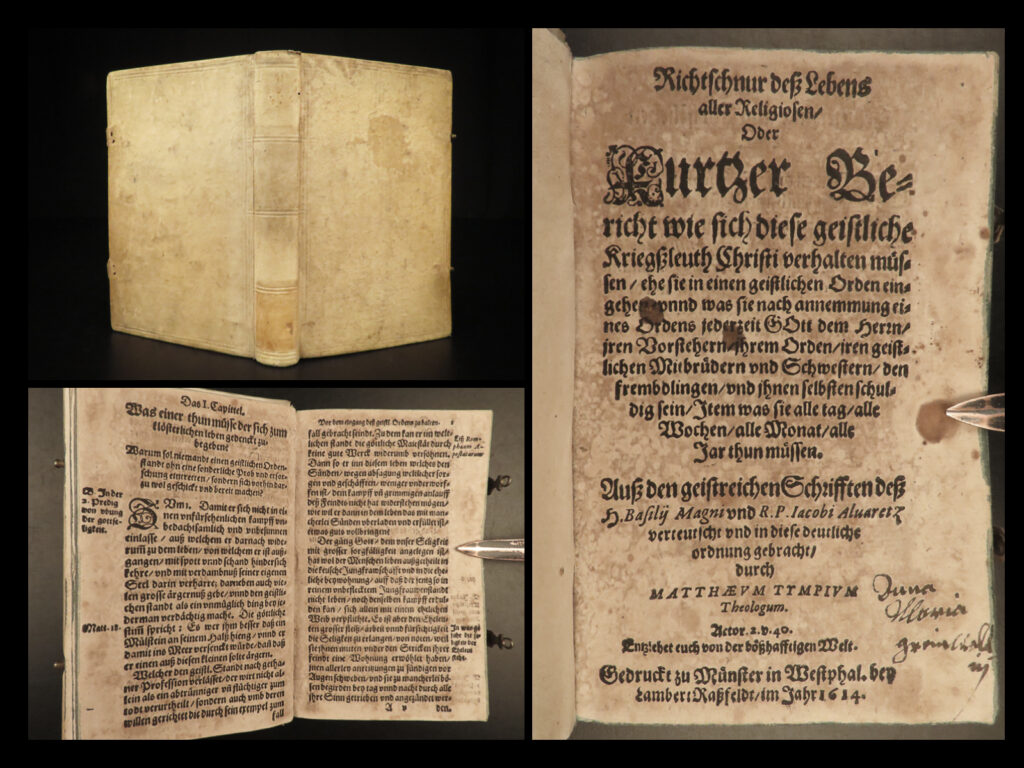 Richtschnur deß Lebens
aller Religiosen/
Oder
Kurtzer Be-
richt wie sich diese geistliche
Kriegßleuth Christi verhalten müs-
sen / ehe sie in einen geistlichen Orden ein-
gehen vnnd was sie nach annemmung ei-
nes Ordens jederzeit GOtt dem Herrn/
jren Vorstehern/ihrem Orden/iren geist-
lichen Mitbrüdern vnd Schwestern/den
frembdlingen/vnd jhnen selbsten schul-
dig sein/Item was sie alle tag/alle
Wochen/alle Monat/alle
Jar thun müssen.
Auß den geistreichen Schrifften deß
H. Basilij Magni vnd R. P. Iacobi Aluaretz
verteutscht vnd in diese deutliche
ordnung gebracht/
durch
MATTHÆVM TYMPIVM
Theologum.
Actor. 2. v. 40.
Entziehet euch von der bößhafftigen Welt.
Gedruckt zu Münster in Westphal. bey
Lambert Raßfeldt/im Jahr 1614.
Anna
Maria
Das I. Capittel.
Was einer thun müsse der sich zum
klösterlichen leben gedenckt zu-
begeben?
Warumb sol niemandt einen geistlichen Orden-
standt ohn eine sonderliche Prob vnd erfor-
schung eintretten / sondern sich vorhin dar-
zu wol geschickt vnd bereit machen?
B. In der
2. Predig
von vbung
der gottse-
ligkeit.
ZVm 1. Damit er sich nicht in ei-
nen vnfürsehenlichen kampff vn-
bedachtsamlich vnd vnbesunnen
einlasse / auß welchem er darnach wide-
rumb zu dem leben / von welchem er ist auß-
gangen / mit spott vnnd schand hindersich
kehre / vnd mit verdambnuß seiner eigenen
Seel darin verharre; daneben auch vie-
len grosse ärgernuß gebe / vnnd den geistli-
chen standt als ein vnmüglich ding bey je-
derman verdächtig mache. Die göttliche
Matt. 18.
stim spricht: Es wer ihm besser daß ein
Mülstein an seinem Halß hieng / vnnd er
damit ins Meer versenckt würde/ dan daß
er einen auß diesen kleinen solte ärgern.
Welcher den geistl. Standt nach getha-
ner Profession verlässet/der wirt nicht al-
lein als ein abtrünniger vn flüchtiger zum
todt verurtheilt / sondern auch vnd deren
willen gerichtet die durch sein exempel zum
fall
Vor dem eingang deß geistl. Ordens zu halten.
fall gebracht seindt. Zu dem kan er in welt-
lichen standt die göttliche Maiestät durch
keine gute Werck widerumb versöhnen.
Dann so er inn diesem leben welches den
Sünden/ wegen absagung weltlicher sor-
gen vnd geschäfften/ weniger vnderworf-
fen ist/ dem kampff vn grimmigen anlauff
deß Feindts nicht hat widerstehen mögen/
wie wil er dann in dem leben das mit man-
cherley Sünden vberladen vnd erfüllet ist/
etwas guts vollbringen?
Der gütig Gott / dem vnser Seligkeit
mit grosser sorgfältigkeit angelegen ist/
hat wol der Menschen leben außgetheilt in
die keusche Jungfrawschafft vnd in die ehe-
liche beywohnung / auff daß der jenig so in
reinem vnbeflecktem Jungfrawenstandt
nicht leben / noch denselben kampff erdul-
den kan / sich allein mit einem ehelichen
Weib verpflichte. Es ist aber den Eheleu-
ten grosser fleiß/ arbeit vnnd fürsichtigkeit
die Seligkeit zu erlangen/ von nöten / weil
sie jhnen mitten vnder den Stricken ihrer
feindt eine Wohnung erwöhlet haben/
mannen allerley anreitzungen zu sündigen vor
Augen schweben/ vnd sie zu mancherley bö-
sen begirden bey tag vnnd nacht durch alle
ihre Sinn getrieben vnd angezündet wer-
A v
den.